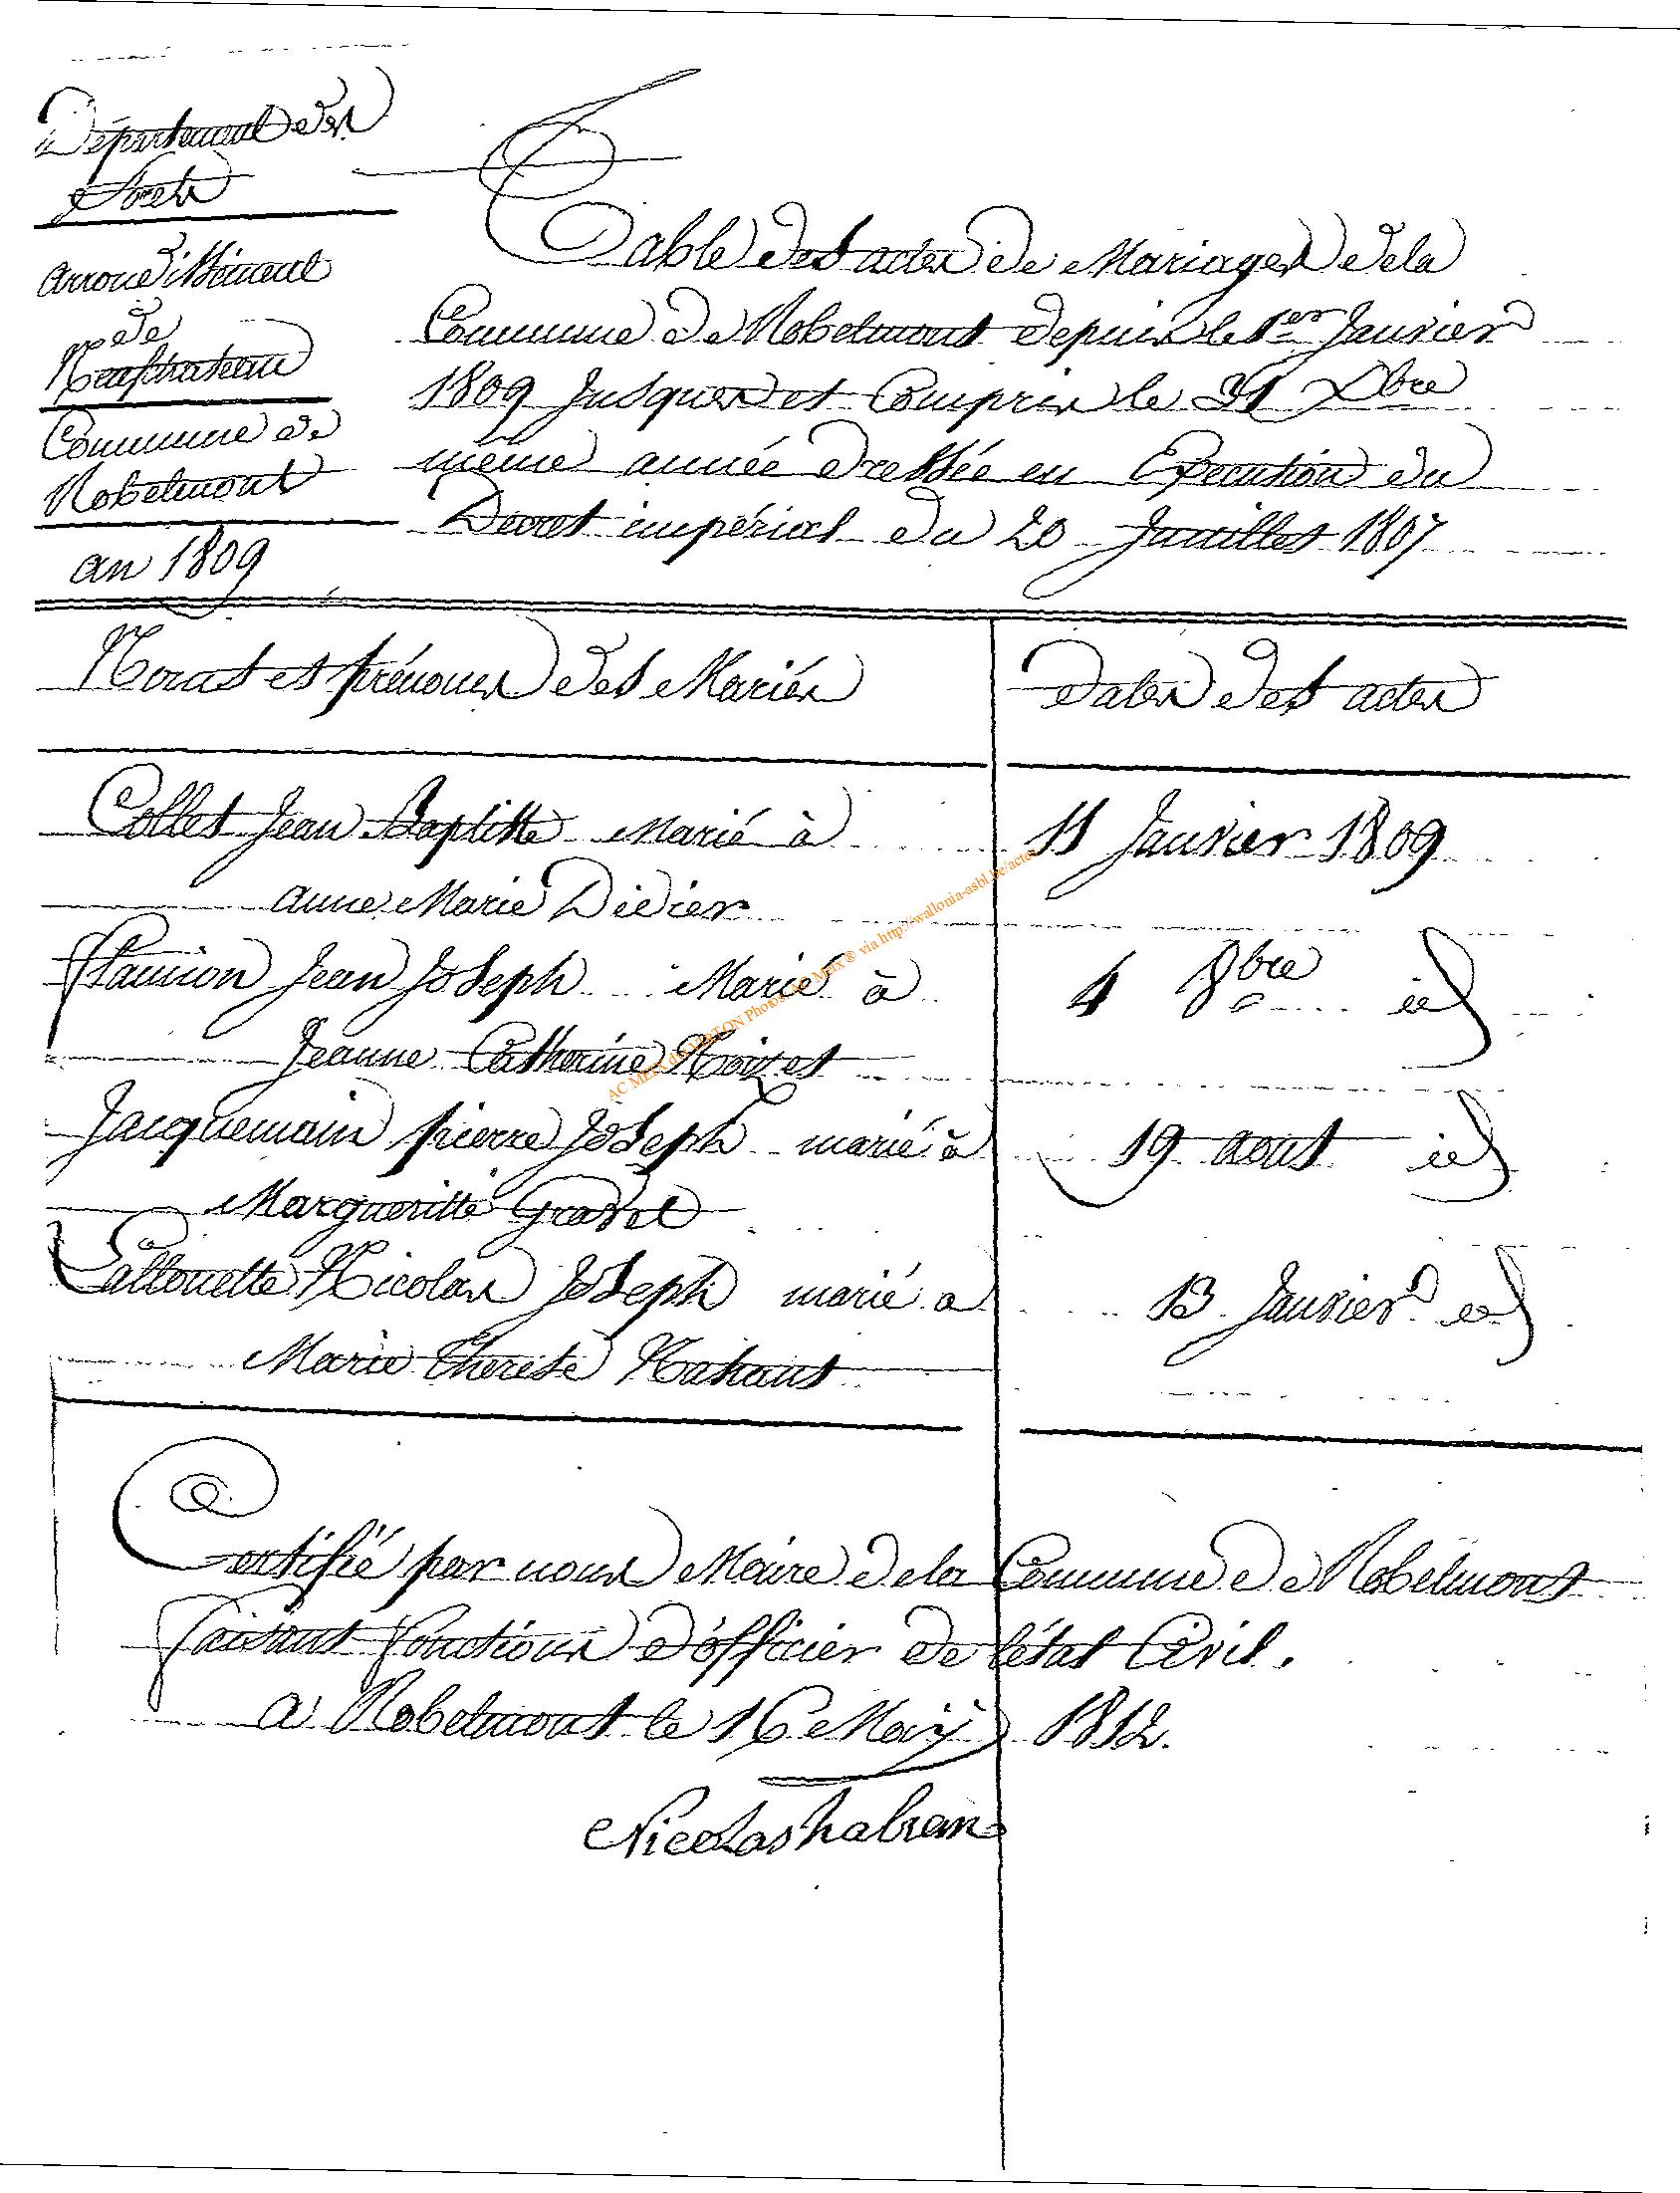 Département des
forets
arrondissement
de
Neufchateau
Commune de
Robelmont
an 1809
Table des actes de Mariages dela
Commune de Robelmont depuis le 1er Janvier
1809 Jusques et Compris le 31 Xbre
même année dressée en Execution du
Decret impérial du 20 Juuilles 1807
Noms et prénoms des Mariés
Dates des actes
Collet Jean Baptiste Marié à
11 Janvier 1809
anne Marie Didier
Jean Joseph Marié à
4 8bre id
Jeanne Catherine Noizet
Jacquemain pierre Joseph marié à
19 aout id
Margueritte Gravel
Lallouette Nicolas Joseph marié a
13 Janvier id
Marie Therese Mahaut
Certifié par nous Maire dela Commune de Robelmont
faisant fonctions d'officier de l'état Civil.
a Robelmont le 16 May 1812.
Nicolas habran
AC MEIX dt VIRTON Photos de Max ® via http://wallonia-asbl.be/actes